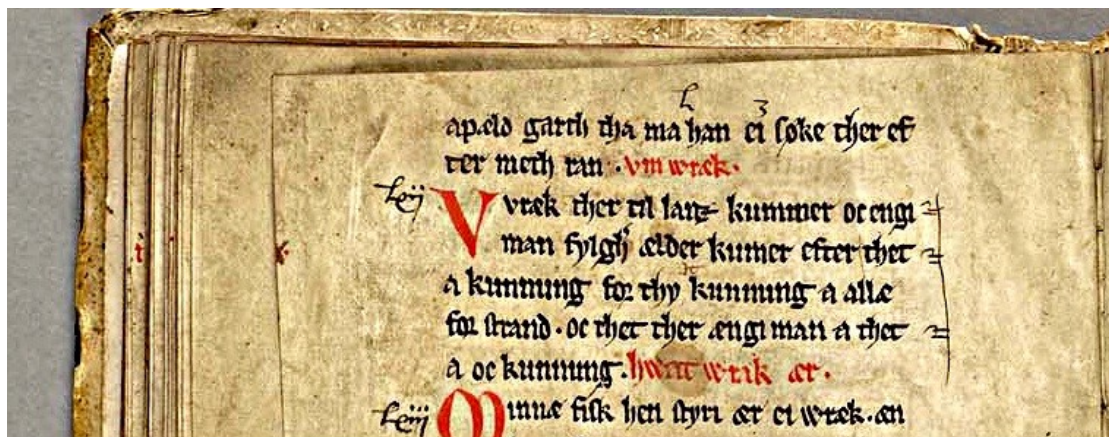 apæld garth tha ma han ei søke ther ef
ter meth ran · vm wræk ·
Vvræk ther til lanz kummer oc engi
man fylghr ælder kumer efter thet
a kunnung for thy kunnung a allæ
for strand · oc thet ther ængi man a thet
a oc kunnung . hwat wrik ær .
Minnæ fisk hen styri ær ei wræk . æn